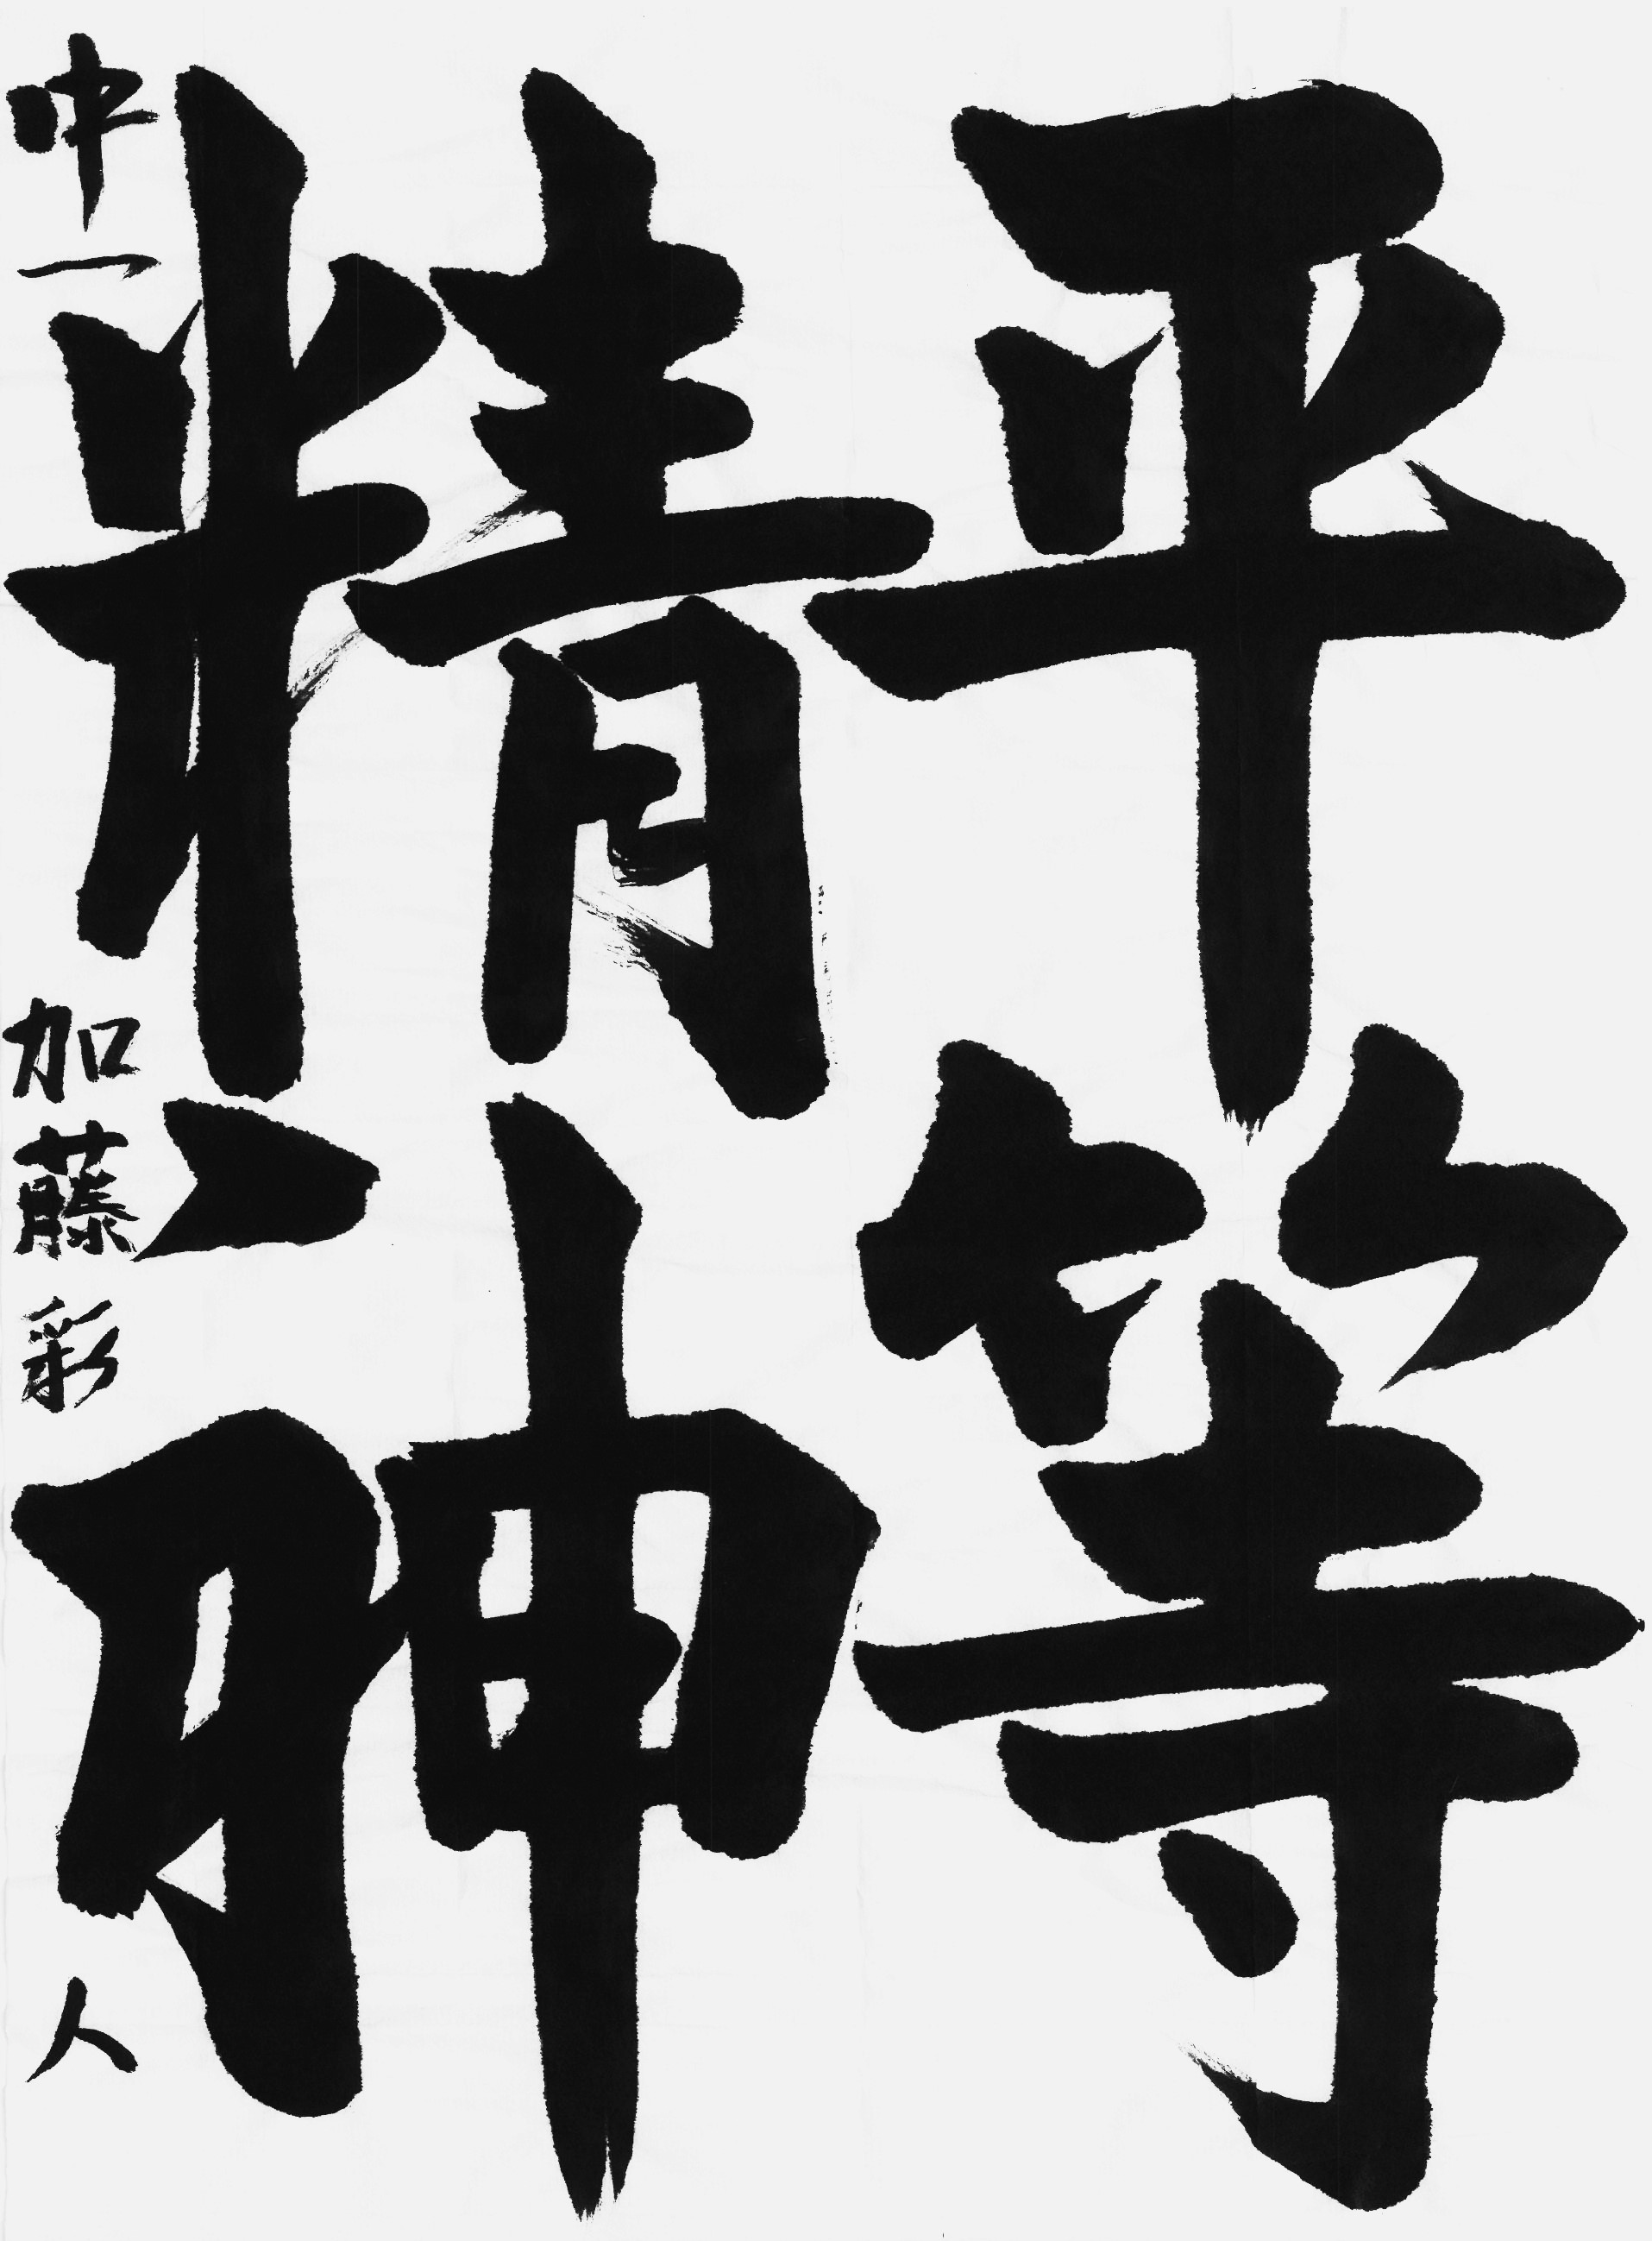 平等
精神
中一 加藤彩人